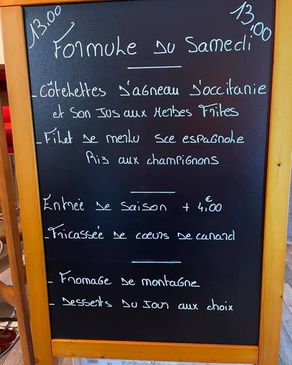 13,00
13,00
Formule Du Samedi
- Côtelettes D'agneau D'occitanie
et Son Jus aux Herbes Frites
- Filet De merlu Sce espagnole
Riz aux champignons
Entrée De Saison + 4,00€
- Fricassée De coeurs De canard
- Fromage De montagne
- Desserts Du Jour aux choix